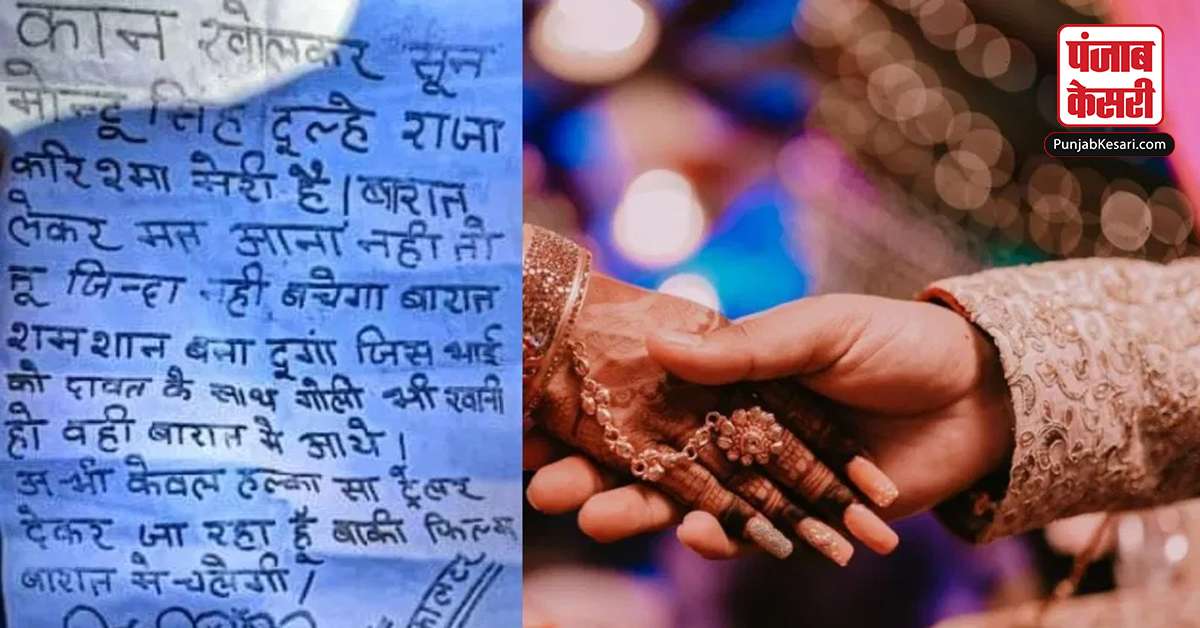 कान खोलकर सून
मोन्टू सिंह दूल्हे राजा
करिश्मा मेरी है। बारात
लेकर मत आना नही तो
तू जिन्दा नही बचेगा बारात
शमशान बना दूगां जिस भाई
को दावत के साथ गोली भी खानी
हो वही बारात मे आये।
अभी केवल हल्का सा ट्रेलर
देकर जा रहा हूँ बाकी फिल्म
बारात मे चलेगी।
पंजाब
केसरी
PunjabKesari.com